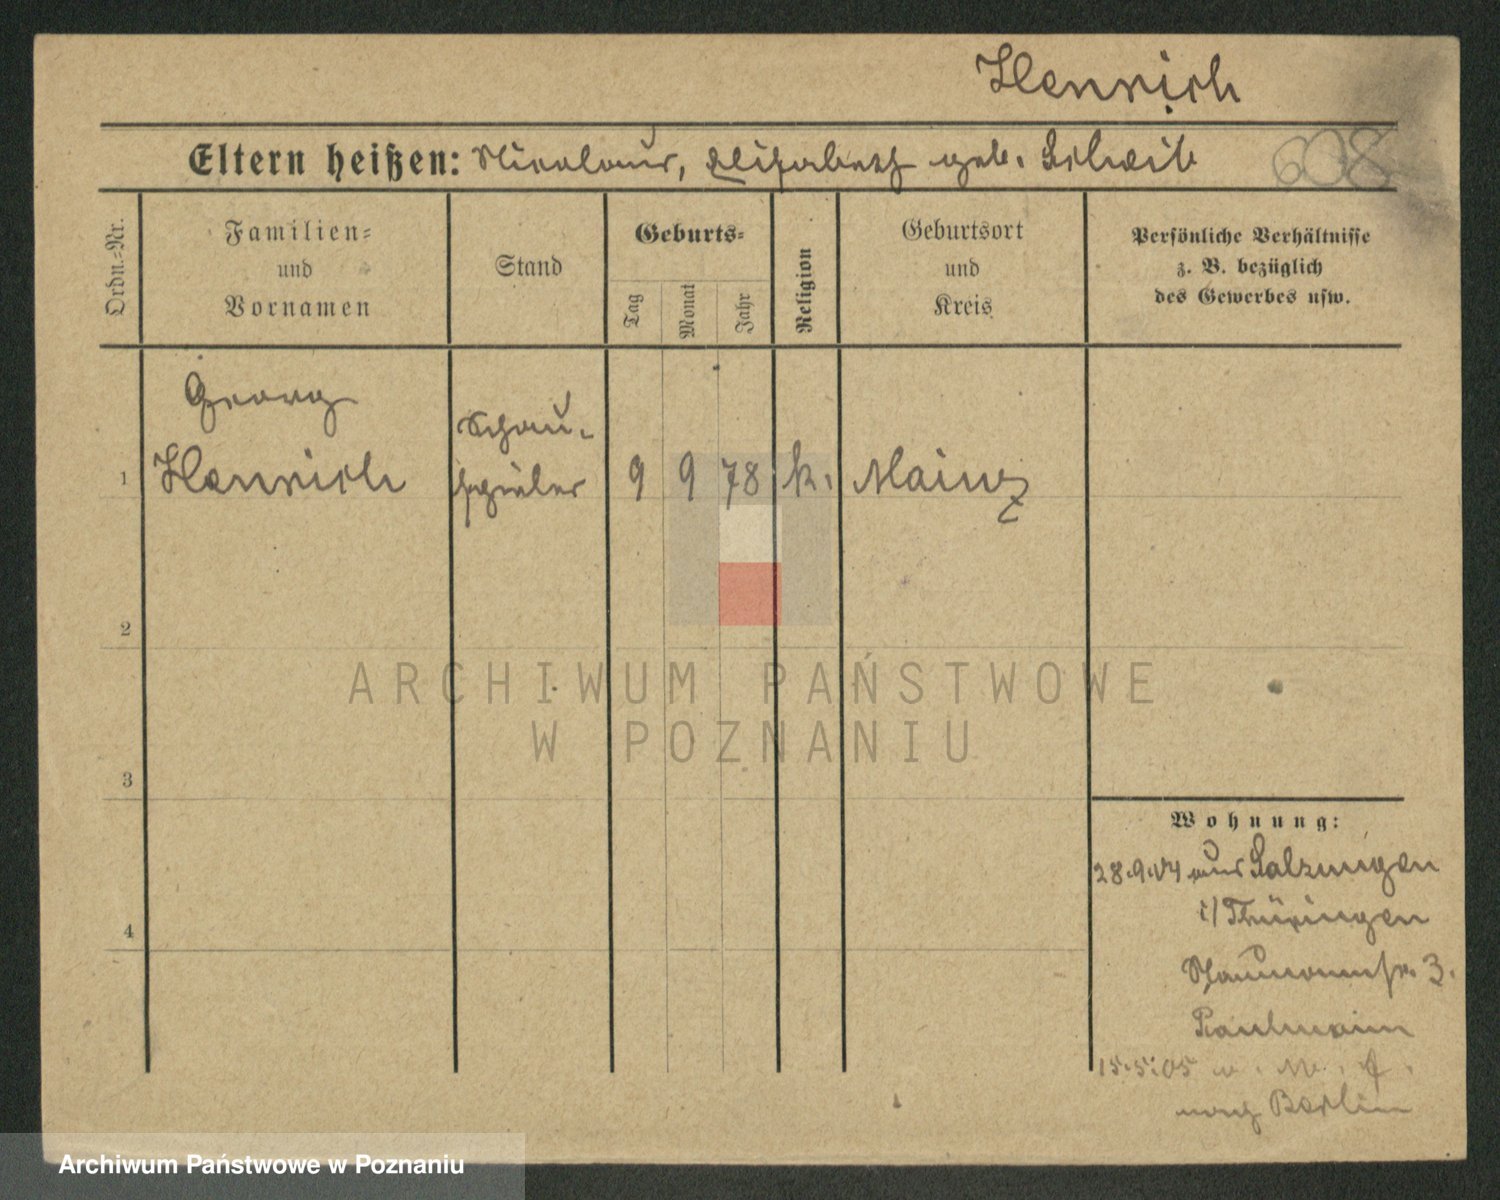 Henrich
Eltern heißen: Nicolaus, Elisabeth geb. Scheib
608
Ordn.=Nr.
Familien=
und
Vornamen
Stand
Geburts=
Tag
Monat
Jahr
Religion
Geburtsort
und
Kreis
Persönliche Verhältnisse
z. B. bezüglich
des Gewerbes usw.
Georg
1 Henrich
Schau-
spieler
9 9 78 k. Mainz
2
3
4
ARCHIWUM PAŃSTWOWE
W POZNANIU
Wohnung:
28.9.04 aus Salzungen
i/Thüringen
Naumannstr. 3.
Paulmann
15.5.05
nach Berlin
Archiwum Państwowe w Poznaniu